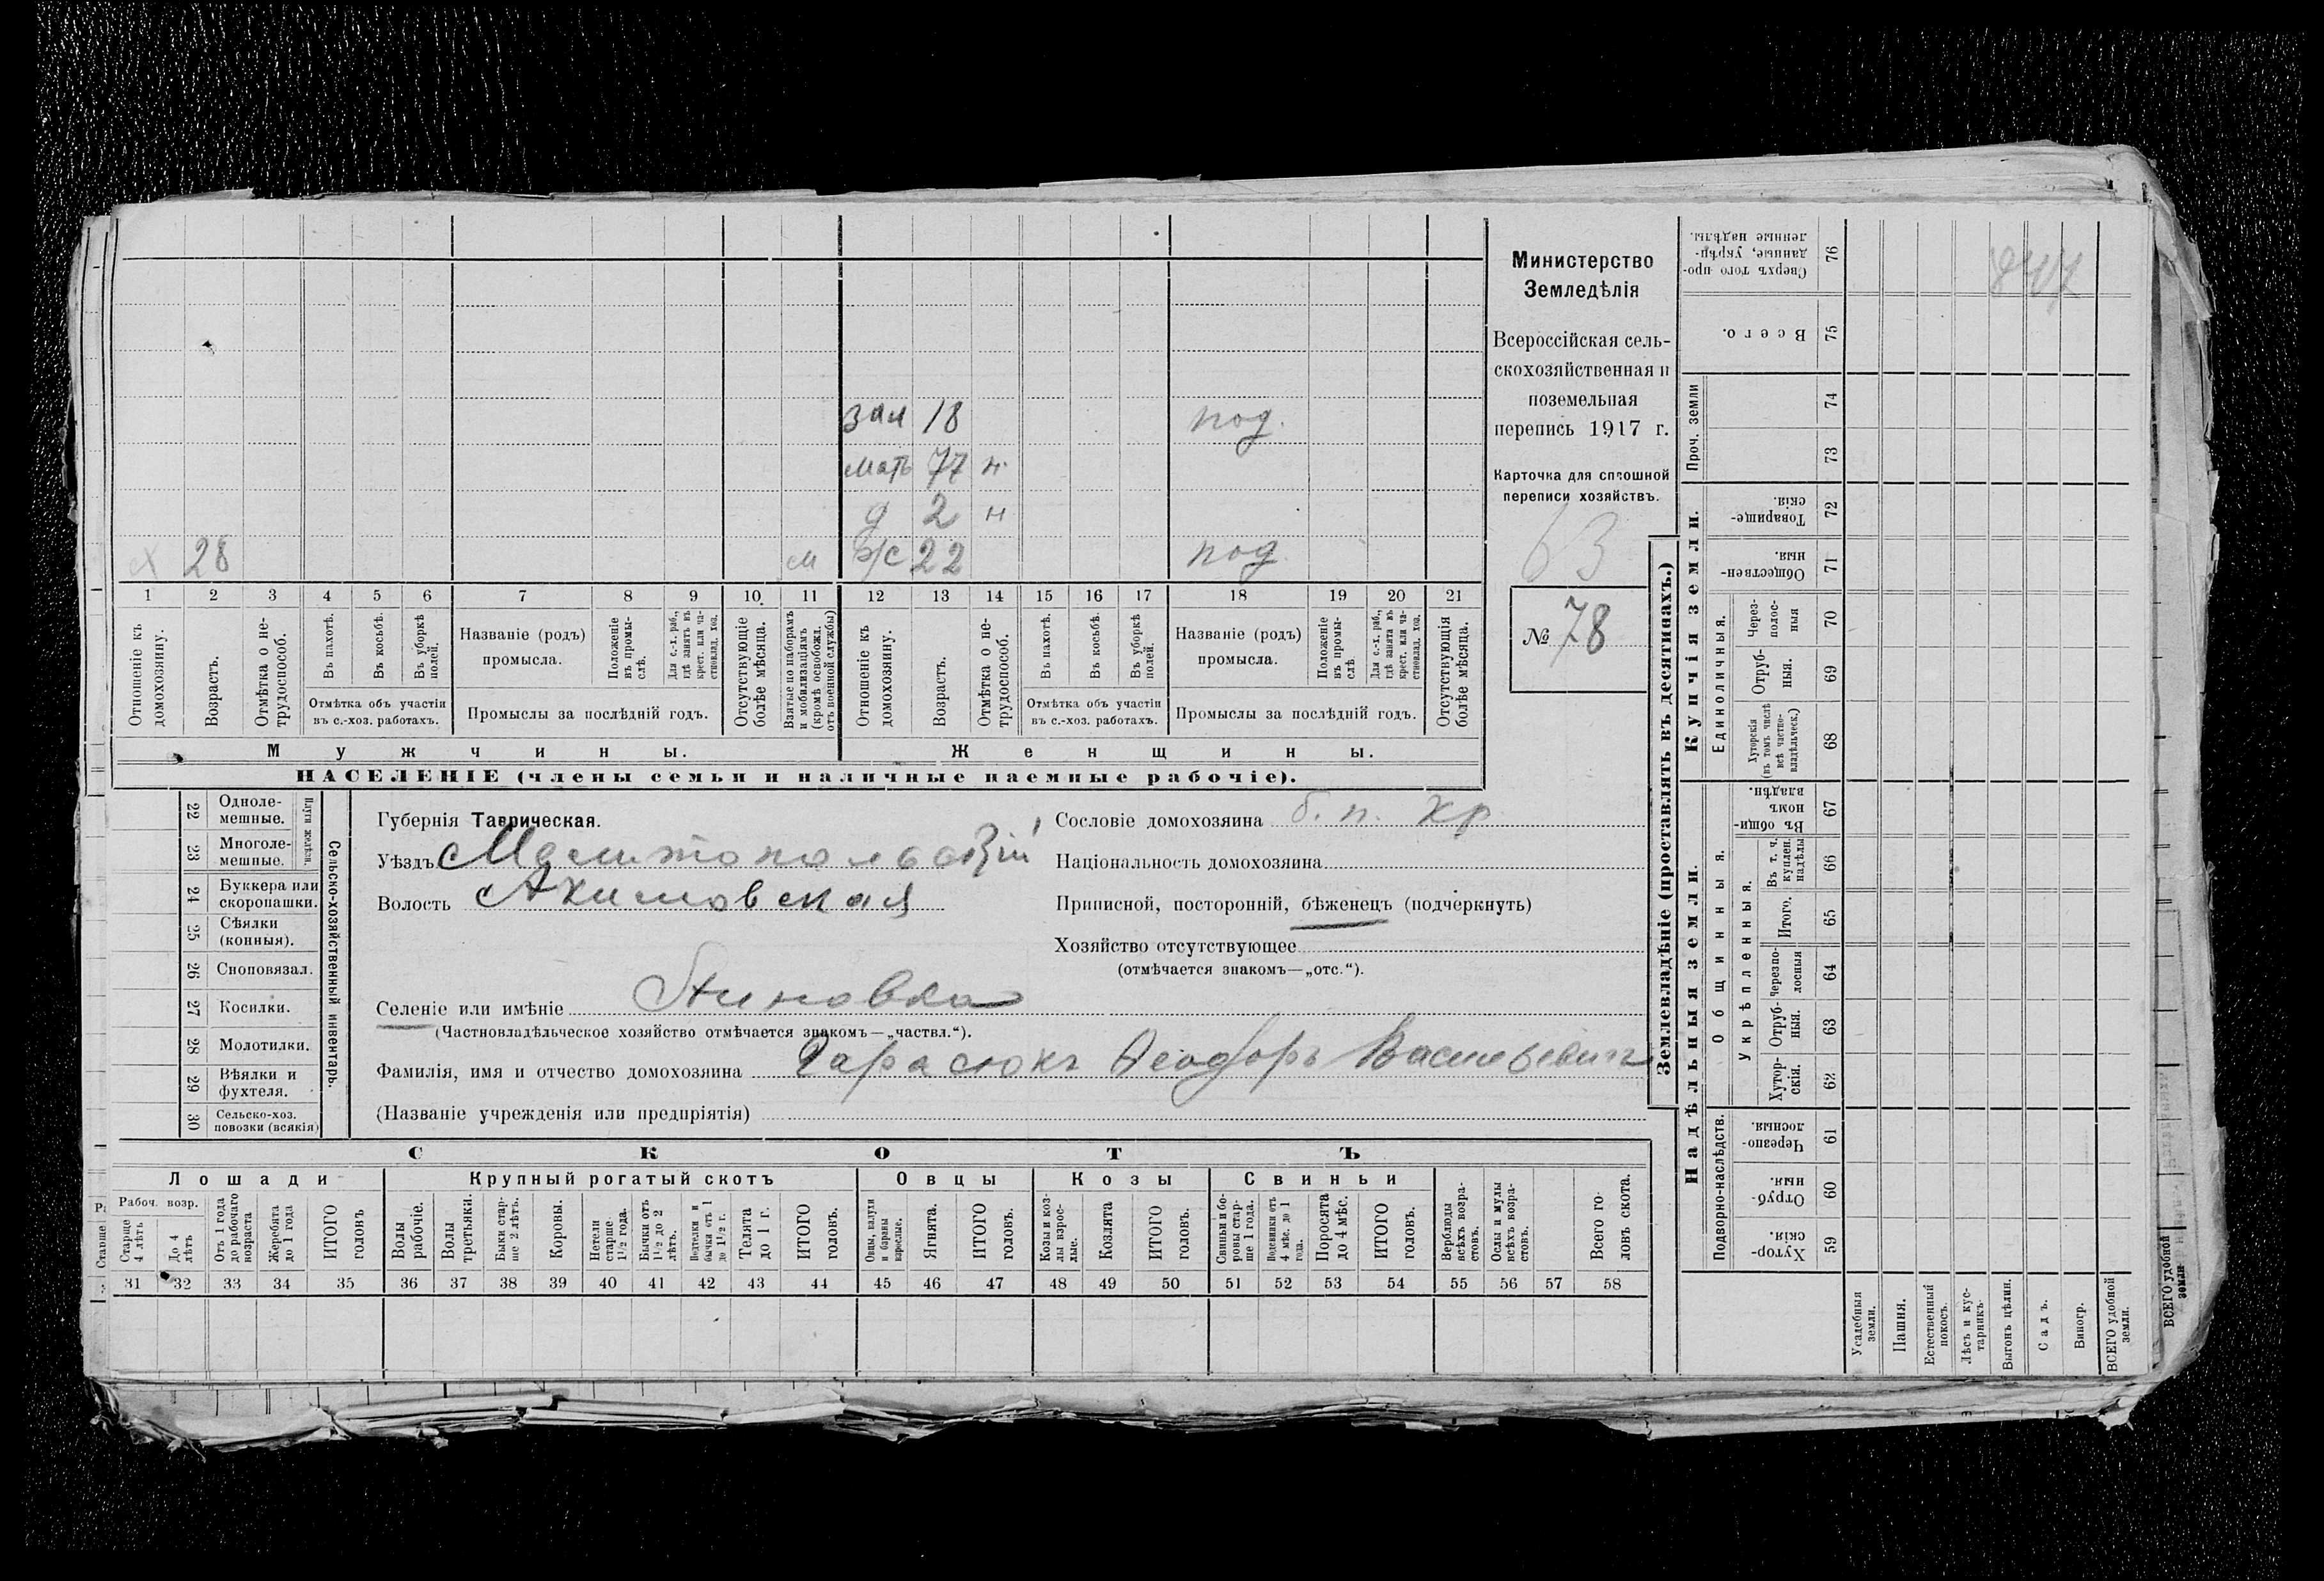 зал 18 под.
мать 77 н.
д 2 н
х 28 м ж/с 22 под
1 2 3 4 5 6 7 8 9 10 11 12 13 14 15 16 17 18 19 20 21
Отношеніе къ домохозяину.
Возрастъ.
Отмѣтка о не-трудоспособ.
Въ пахотѣ.
Въ косьбѣ.
Въ уборкѣ полей.
Отмѣтка объ участіи въ с.-хоз. работахъ.
Названіе (родъ) промысла.
Положеніе въ промы-слѣ.
Для с.-х. раб., гдѣ занятъ въ крест. или ча-стновлад. хоз.
Промыслы за послѣдній годъ.
Отсутствующіе болѣе мѣсяца.
Взятые по наборамъ и мобилизаціямъ (кромѣ освобожд. отъ военной службы)
Отношеніе къ домохозяину.
Возрастъ.
Отмѣтка о не-трудоспособ.
Въ пахотѣ.
Въ косьбѣ.
Въ уборкѣ полей.
Отмѣтка объ участіи въ с.-хоз. работахъ.
Названіе (родъ) промысла.
Положеніе въ промы-слѣ.
Для с.-х. раб., гдѣ занята въ крест. или ча-стновлад. хоз.
Промыслы за послѣдній годъ.
Отсутствующія болѣе мѣсяца.
Мужчины.
Женщины.
НАСЕЛЕНІЕ (члены семьи и наличные наемные рабочіе).
Министерство
Земледѣлія
Всероссійская сель-
скохозяйственная и
поземельная
перепись 1917 г.
Карточка для сплошной
переписи хозяйствъ.
63
№ 78
Губернія Таврическая.
Уѣздъ Мелитопольскій
Волость Акимовская
Сословіе домохозяина б. п. кр
Національность домохозяина
Приписной, посторонній, бѣженецъ (подчеркнуть)
Хозяйство отсутствующее
(отмѣчается знакомъ—„отс.“).
Селеніе или имѣніе Яновка
(Частновладѣльческое хозяйство отмѣчается знакомъ—„частвл.“).
Фамилія, имя и отчество домохозяина Тарасюкъ Феодоръ Васильевичъ
(Названіе учрежденія или предпріятія)
Сельско-хозяйственный инвентарь.
Плуги желѣзн.
22 Одноле-мешные.
23 Многоле-мешные.
24 Буккера или скоропашки.
25 Сѣялки (конныя).
26 Сноповязал.
27 Косилки.
28 Молотилки.
29 Вѣялки и фухтеля.
30 Сельско-хоз. повозки (всякія)
СКОТЪ
Лошади
Крупный рогатый скотъ
Овцы
Козы
Свиньи
Рабоч. возр.
Старше 4 лѣтъ
До 4 лѣтъ
Отъ 1 года до рабочаго возраста
Жеребята до 1 года
ИТОГО головъ
Волы рабочіе.
Волы третьяки.
Быки стар-ше 2 лѣтъ.
Коровы.
Нетели старше 1½ года.
Бычки отъ 1½ до 2 лѣтъ.
Подтелки и бычки отъ 1 до 1½ г.
Телята до 1 г.
ИТОГО головъ.
Овцы, валухи и бараны взрослые.
Ягнята.
ИТОГО головъ.
Козы и коз-лы взрос-лые.
Козлята
ИТОГО головъ.
Свиньи и бо-ровы стар-ше 1 года.
Подсвинки отъ 4 мѣс. до 1 года.
Поросята до 4 мѣс.
ИТОГО головъ.
Верблюды всѣхъ возра-стовъ.
Ослы и мулы всѣхъ возра-стовъ.
Всего го-ловъ скота.
31 32 33 34 35 36 37 38 39 40 41 42 43 44 45 46 47 48 49 50 51 52 53 54 55 56 57 58
Землевладѣніе (проставлять въ десятинахъ.)
Надѣльныя земли.
Купчія земли.
Проч. земли
Подворно-наслѣдств.
Общинныя.
Укрѣпленныя.
Единоличныя.
Сверхъ того про-данные, укрѣп-ленные надѣлы. 76
Всего. 75
74
73
Товарище-скія. 72
Обществен-ныя. 71
Через-полос-ныя 70
Отруб-ныя. 69
Хуторскія (въ томъ числѣ всѣ частно-владѣльческ.) 68
Въ общин-номъ владѣн. 67
Въ т. ч. куплен. надѣлы 66
Итого. 65
Черезпо-лосныя 64
Отруб-ныя. 63
Хутор-скія. 62
Черезпо-лосныя. 61
Отруб-ныя. 60
Хутор-скія. 59
Усадебныя земли.
Пашня.
Естественный покосъ.
Лѣсъ и кус-тарникъ.
Выгонъ цѣлин.
Садъ.
Виногр.
ВСЕГО удобной земли.
ВСЕГО удобной земли